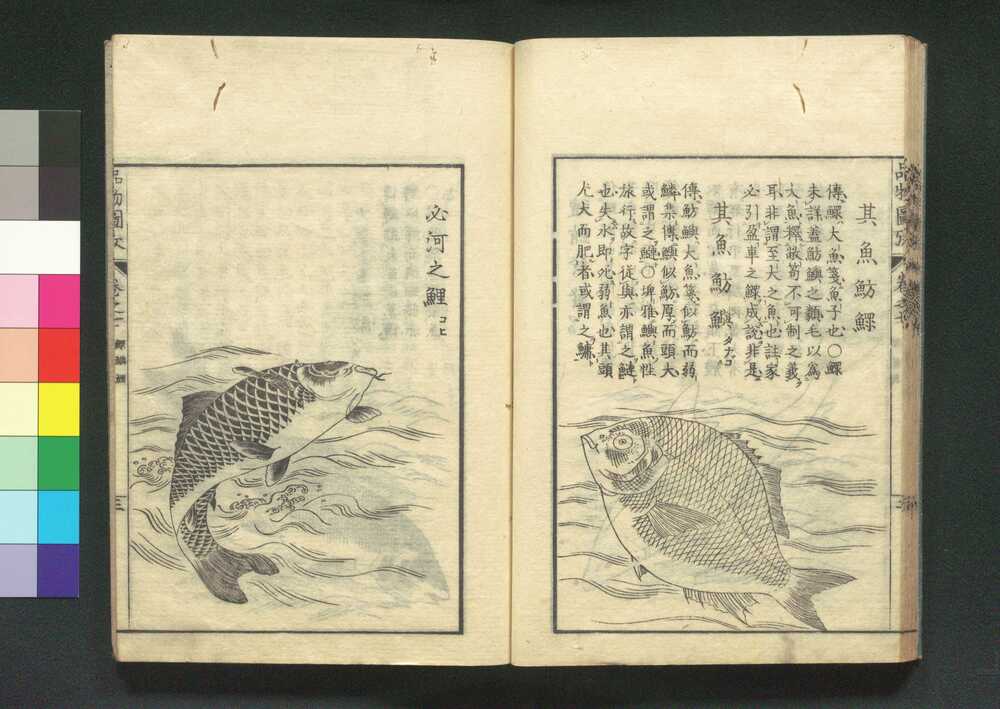 其魚魴鰥
傳鰥大魚箋魚子也○鰥
未詳蓋魴鱮之類毛以爲
大魚釋敝笱不可制之義
耳非謂至大之魚也註家
必引盈車之鰥成說非是
其魚魴鱮 タナゴ
傳魴鱮大魚箋似魴而弱
鱗集傳鱮似魴厚而頭大
或謂之鰱○埤雅鱮魚性
旅行故字從與亦謂之鰱
也失水即死弱魚也其頭
尤大而肥者或謂之鱅
必河之鯉 コヒ
品物圖攷